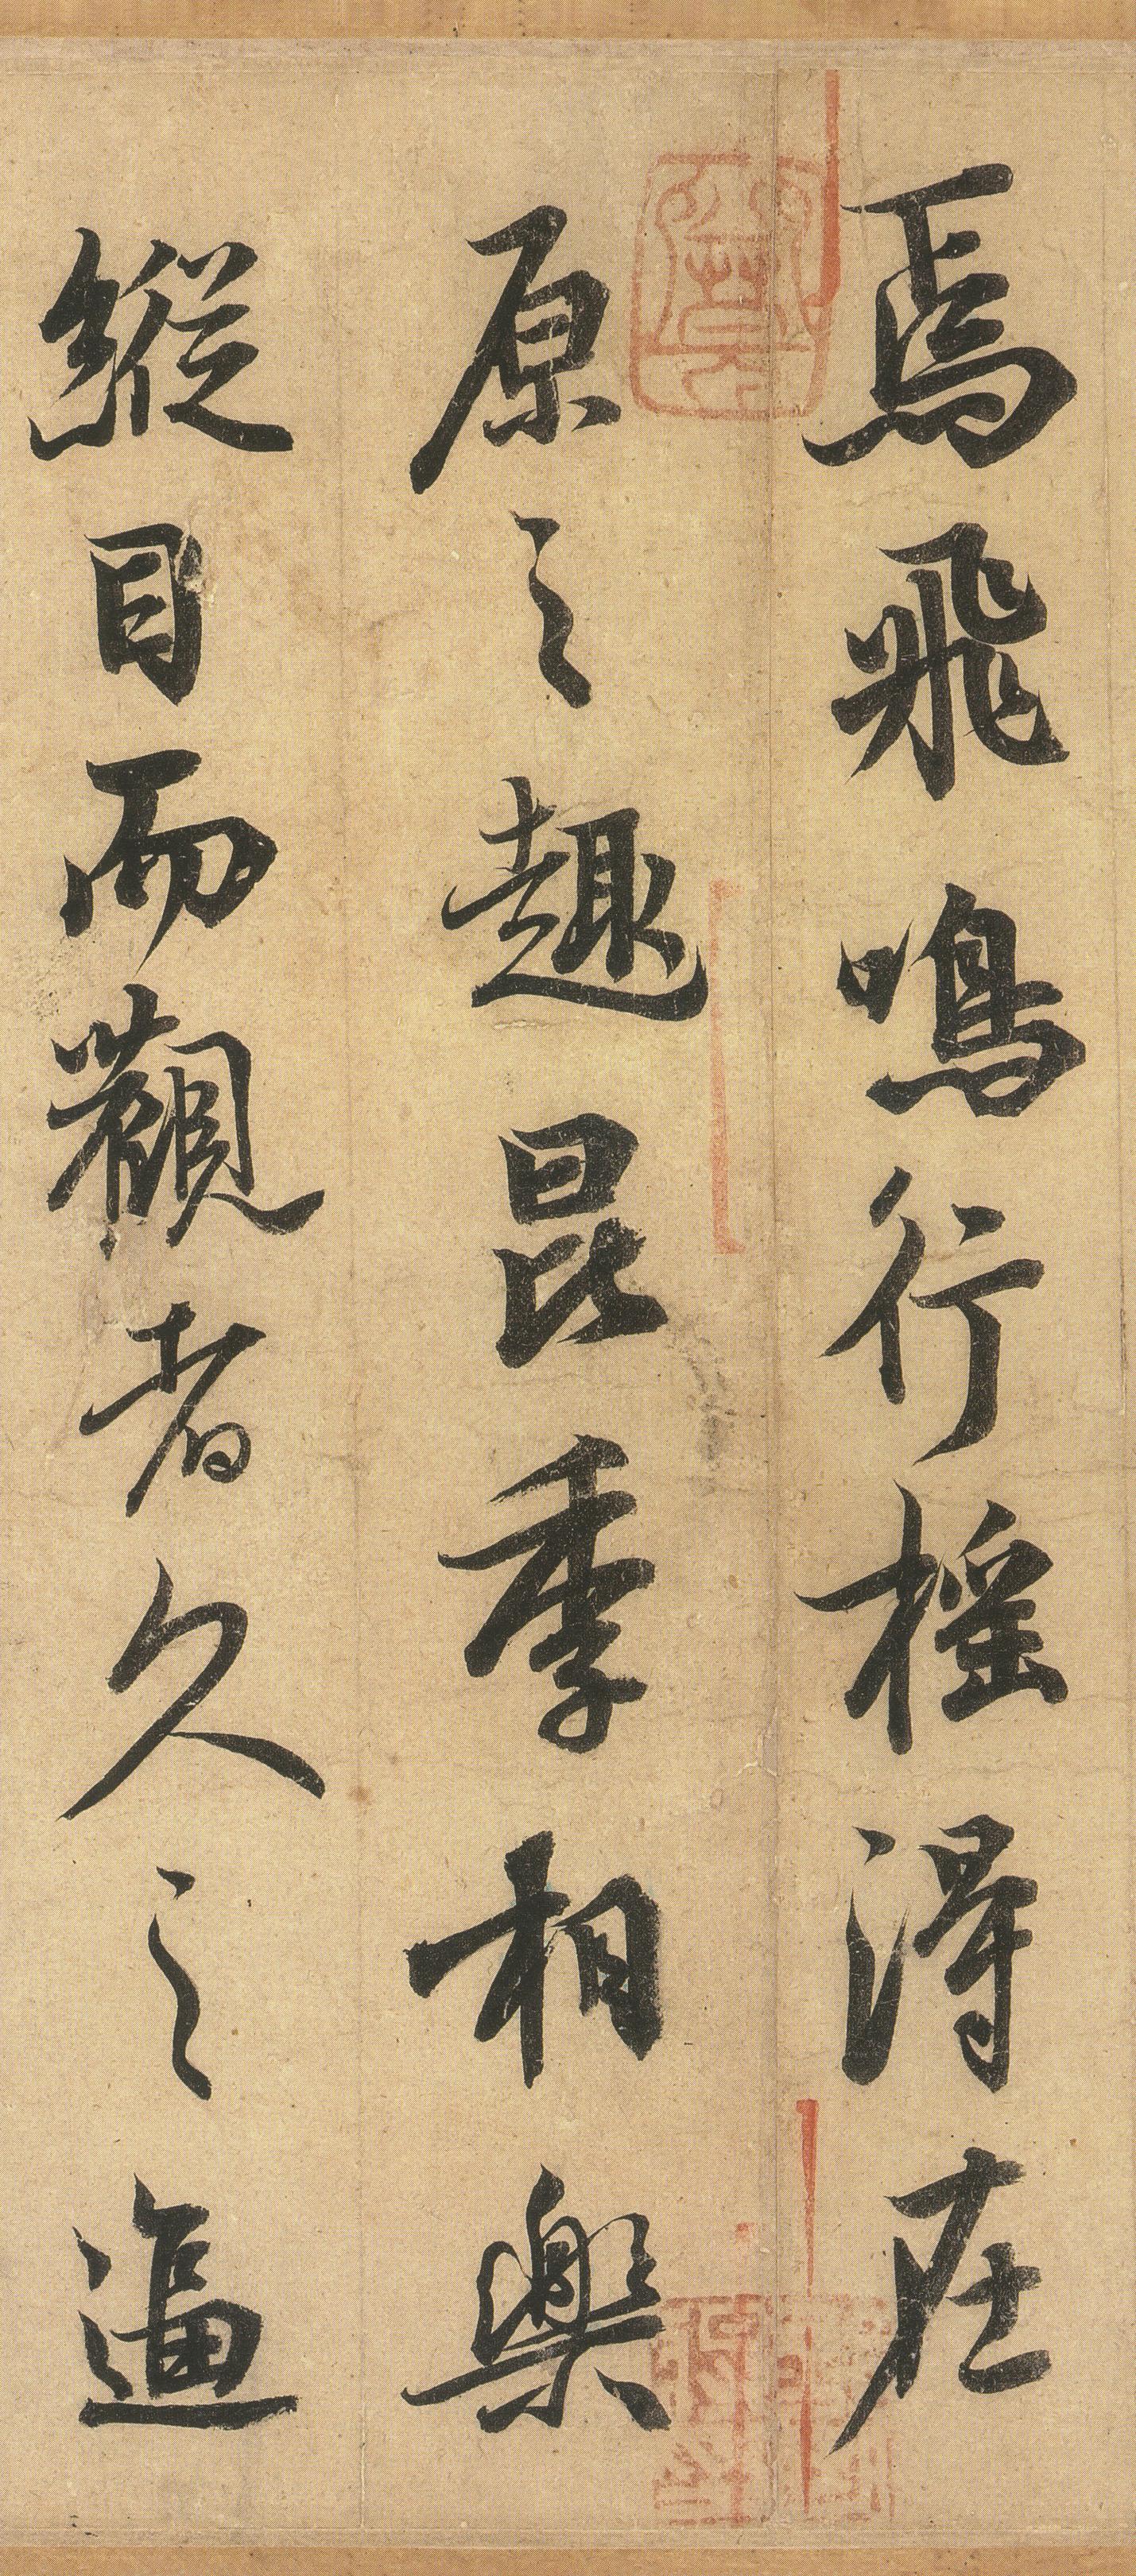 焉飛鳴行摇得在
原之趣昆季相樂
縱目而觀者久之逼